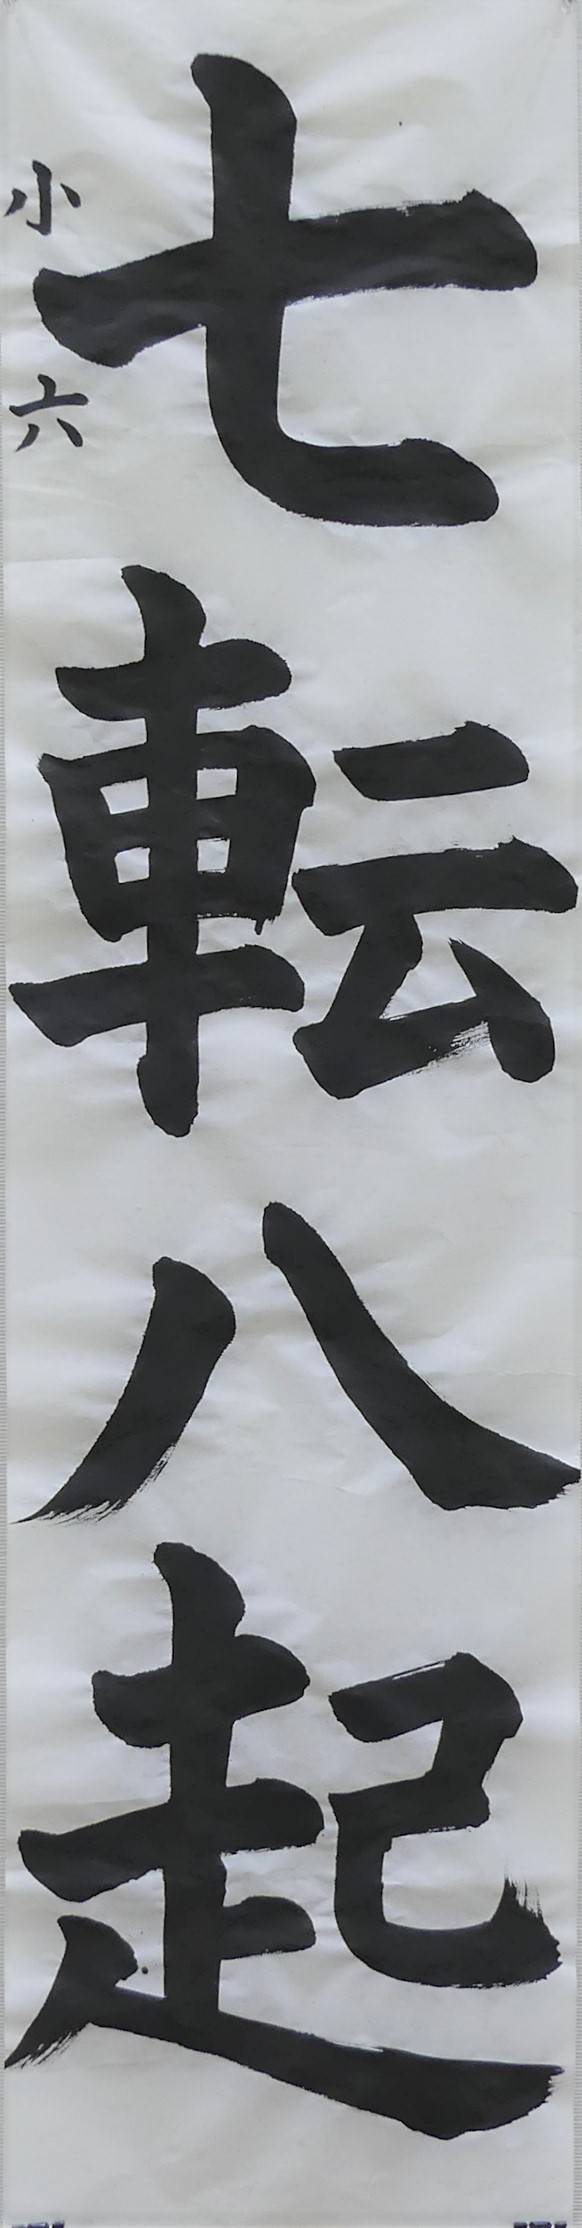 七転八起
小六